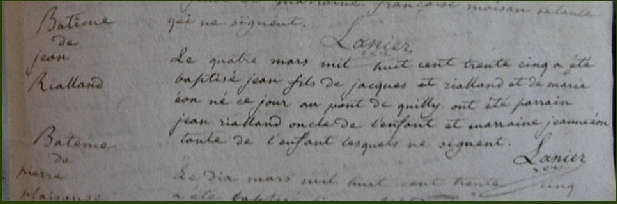 marraine françoise moisan
qui ne signent.
Lanier
Batême
de
jean
Rialland
Le quatre mars mil huit cent trente cinq a été
baptisé jean fils de jacques et rialland et de marie
éon né ce jour au pont de quilly ont été parrain
jean rialland oncle de l'enfant et marraine jeanne éon
tante de l'enfant lesquels ne signent.
Lanier
Batême
de
pierre
plaisance
Le dix mars mil huit cent trente cinq
a été baptisé